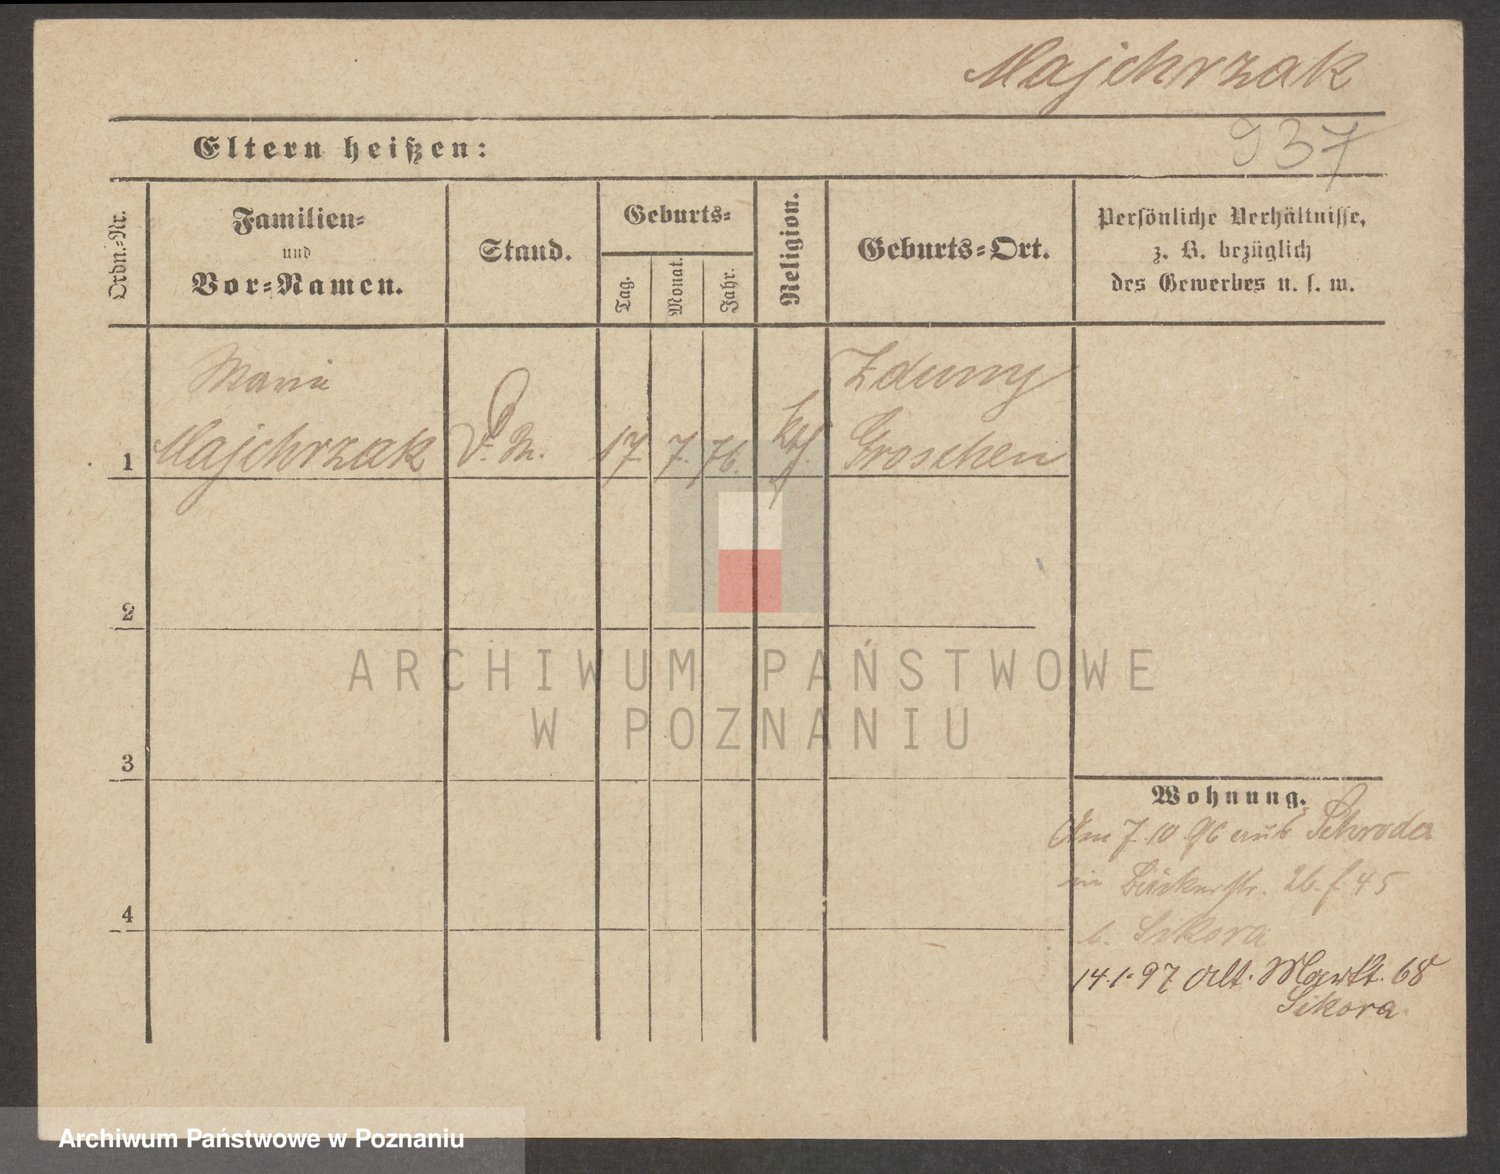 Majchrzak
937
Eltern heißen:
Ordn.-Nr.
Familien-
und
Vor-Namen.
Stand.
Geburts-
Tag.
Monat.
Jahr.
Religion.
Geburts-Ort.
Persönliche Verhältnisse,
z. B. bezüglich
des Gewerbes u. s. w.
Maria
Zduny
1 Majchrzak 17. 7. 76. kth. Groschen
2
ARCHIWUM PAŃSTWOWE
W POZNANIU
3
Wohnung.
Am 7. 10. 96 aus Schroda
in Bäckerstr. 26. f. 45
b. Sikora
4
14.1.97 Alt. Markt. 68
Sikora
Archiwum Państwowe w Poznaniu